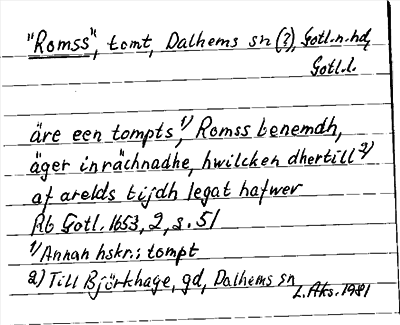 "Romss", tomt, Dalhems sn (?), Gotl.n.hd,
Gotl.l.
äre een tompts 1), Romss benemdh,
äger inrächnadhe, hwilcken dhertill 2)
af arelds tijdh legat hafwer
Rb Gotl. 1653, 2, s. 51
1) Annan hskr.: tompt
2) Till Björkhage, gd, Dalhems sn
L. Aks. 1981